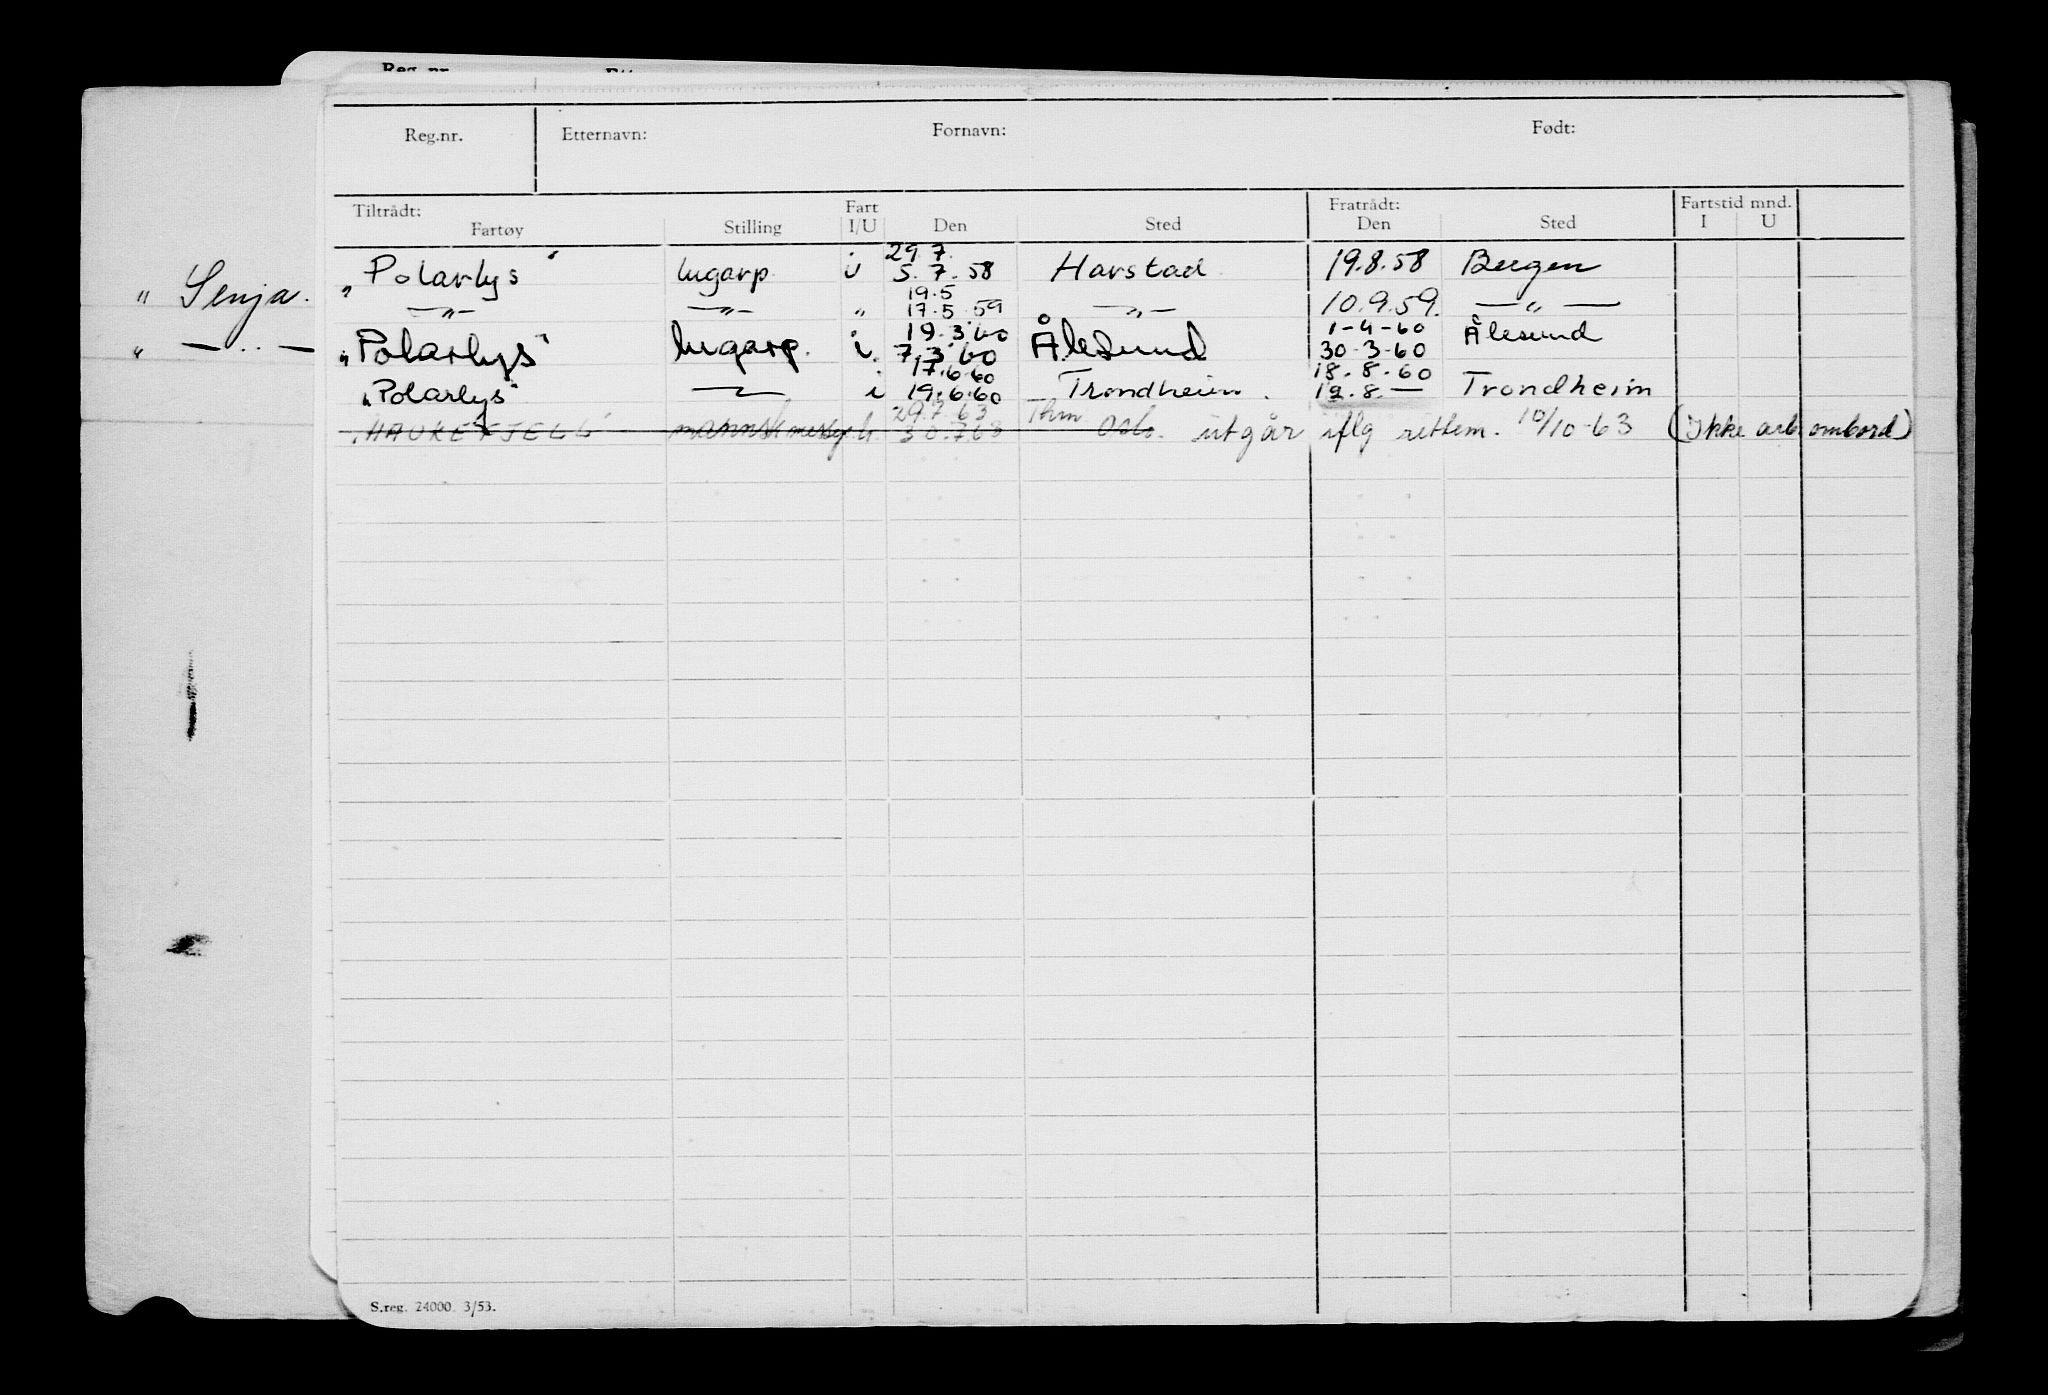 Reg.nr.
Reg.nr. Etternavn: Fornavn: Født:
Tiltrådt: Fartøy Stilling Fart I/U Den Sted Fratrådt: Den Sted Fartstid mnd. I U
29.7.
„Polarlys" lugarp. i 5.7.58 Harstad 19.8.58 Bergen
" Senja.
19.5
—"— —"— " 17.5.59 —"— 10.9.59. —"—
19.3.60 1-4-60 Ålesund
" —"— „Polarlys" lugarp. i. 7.3.60 Ålesund 30-3-60
17.6.60 18.8.60
„Polarlys" — i 19.6.60 Trondheim. 8.— Trondheim
29.7.63 Thm
„HAUKEFJELL" mannskmessg. u. 30.7.63 Oslo. utgår iflg rettem. 10/10-63 (Ikke arb ombord)
S.reg. 24000 3/53.